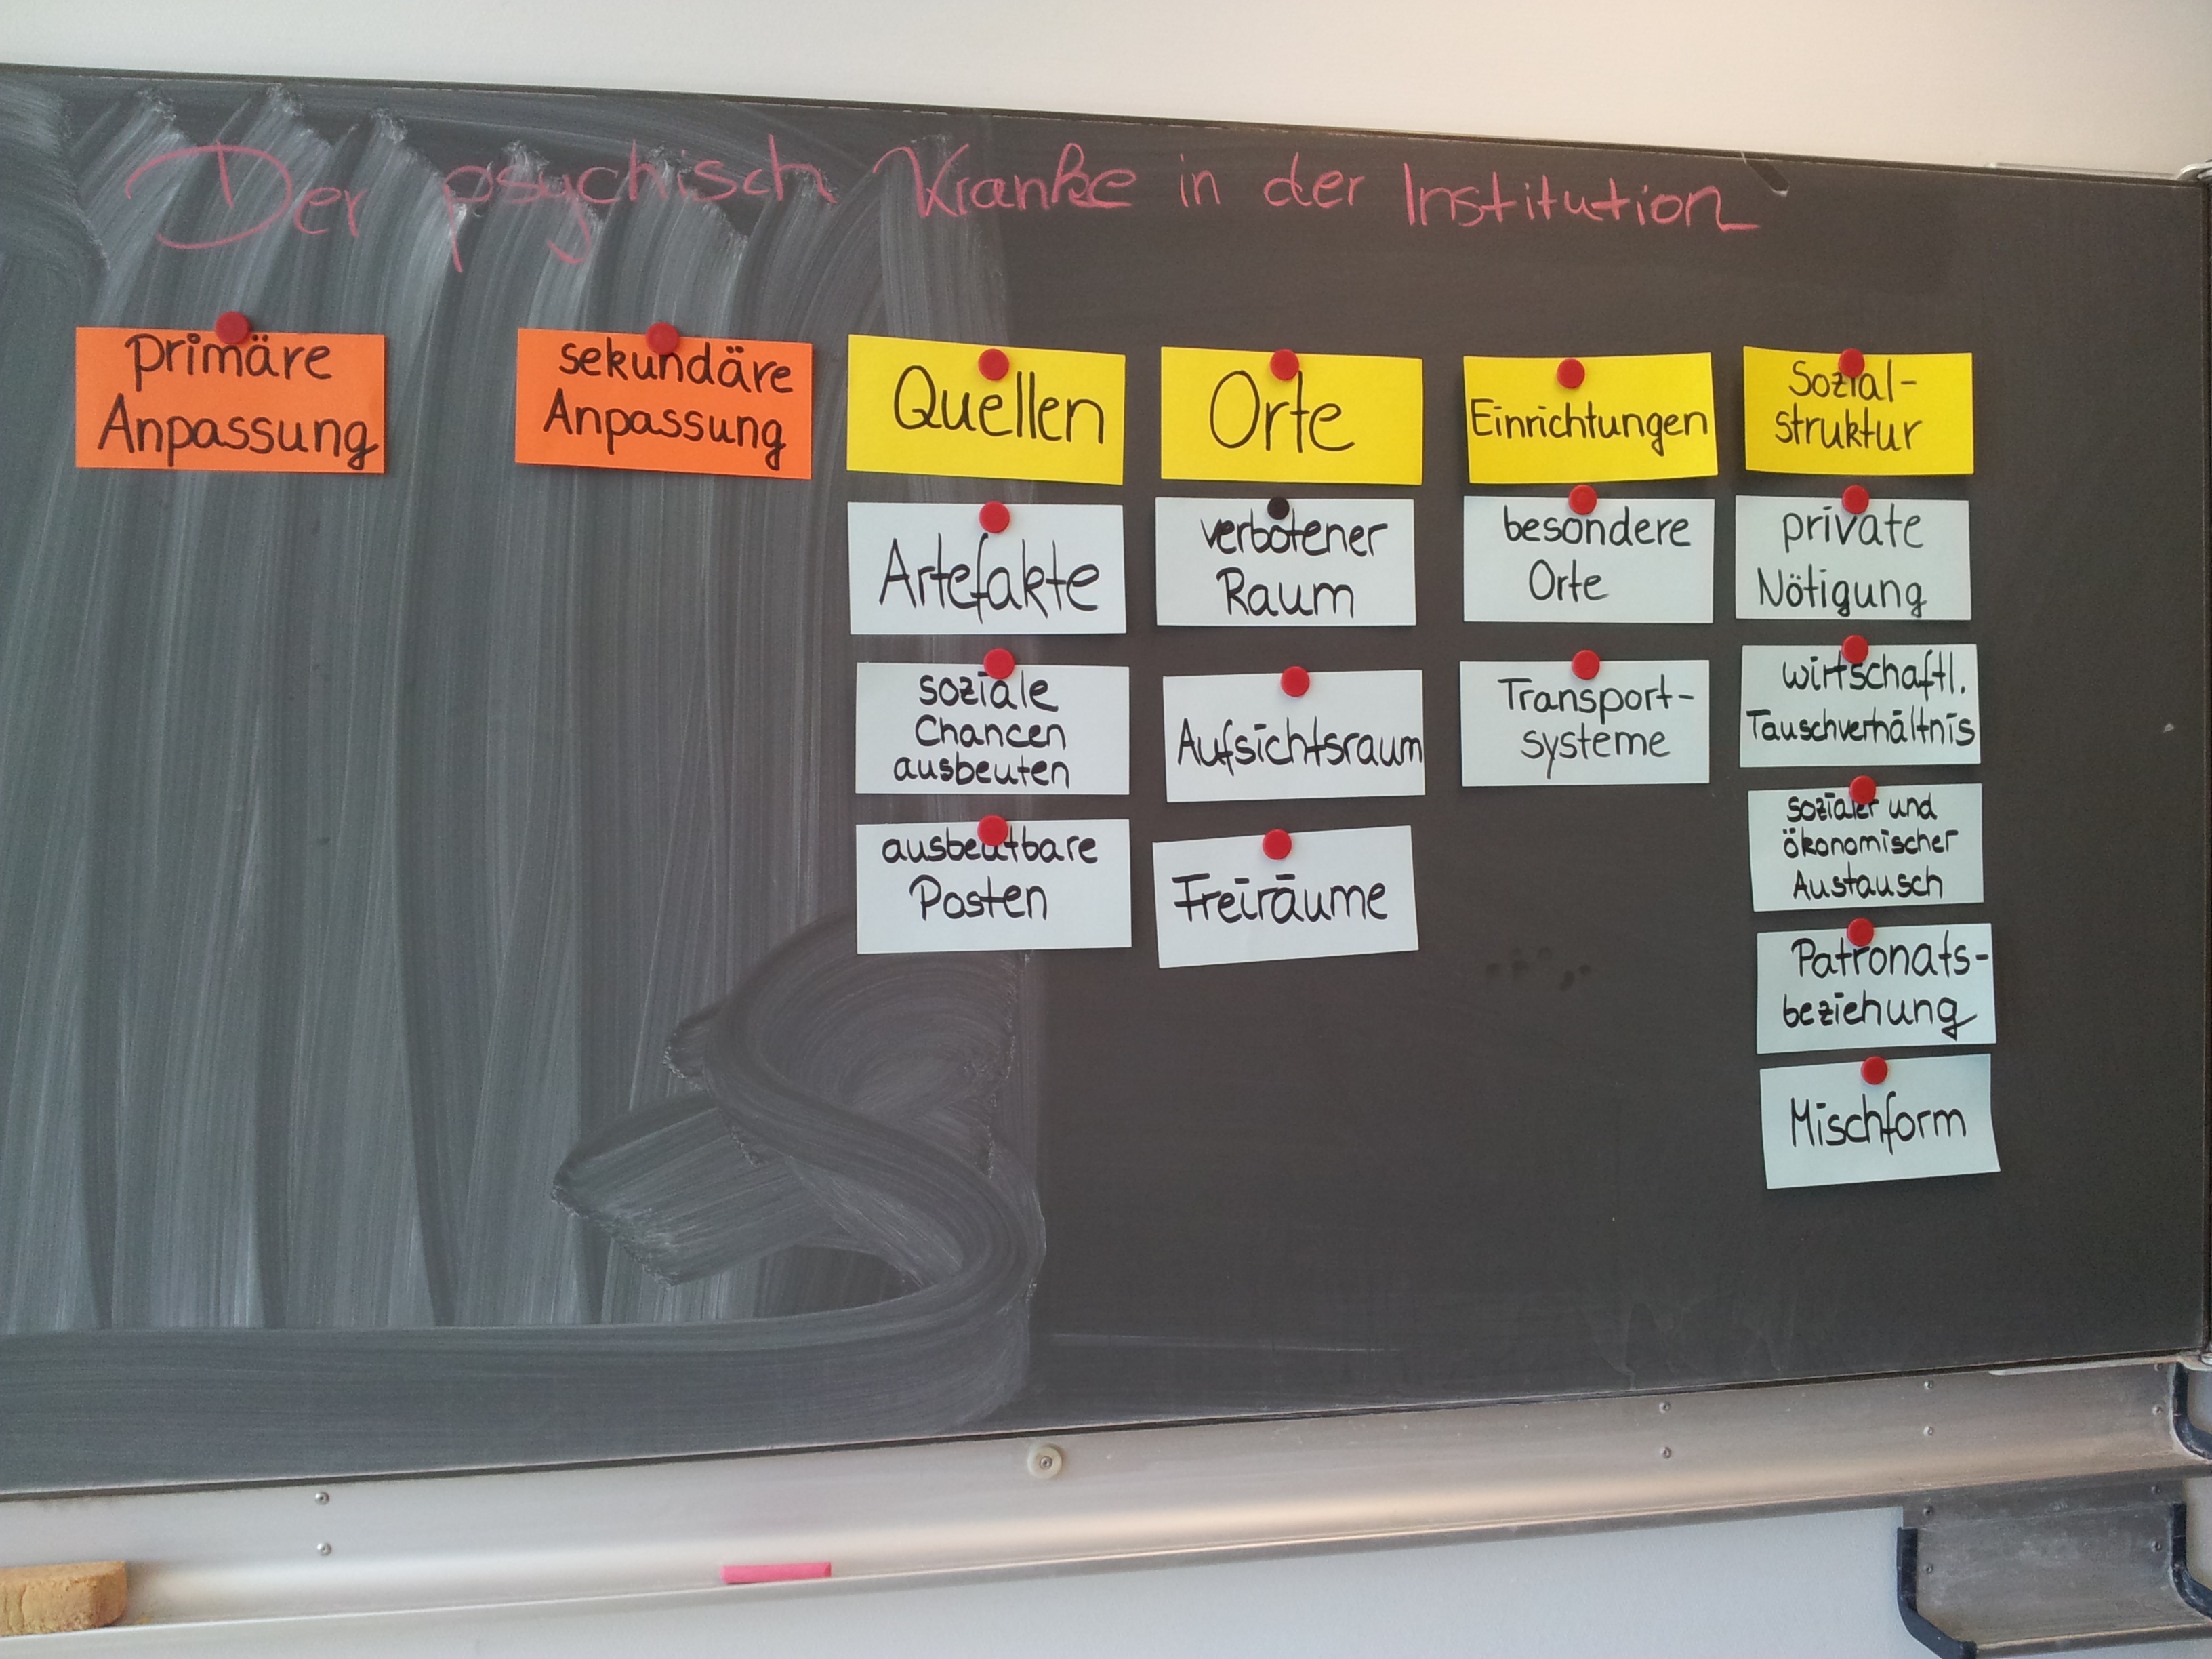 Der psychisch Kranke in der Institution
primäre
Anpassung
sekundäre
Anpassung
Quellen
Artefakte
soziale
Chancen
ausbeuten
ausbeutbare
Posten
Orte
verbotener
Raum
Aufsichtsraum
Freiräume
Einrichtungen
besondere
Orte
Transport-
systeme
Sozial-
struktur
private
Nötigung
wirtschaftl.
Tauschverhältnis
sozialer und
ökonomischer
Austausch
Patronats-
beziehung
Mischform